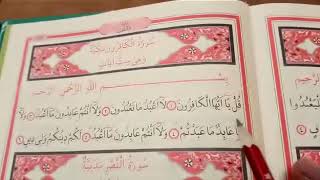 سُورَةُ الْكَافِرُونَ مَكِّيَّةٌ
وَهِيَ سِتُّ اٰيَاتٍ
بِسْمِ اللّٰهِ الرَّحْمٰنِ الرَّحِيمِ
قُلْ يَٓا اَيُّهَا الْكَافِرُونَۙ ﴿١﴾ لَٓا اَعْبُدُ مَا تَعْبُدُونَۙ ﴿٢﴾ وَلَٓا اَنْتُمْ عَابِدُونَ مَٓا اَعْبُدُۚ ﴿٣﴾ وَلَٓا
اَنَا۬ عَابِدٌ مَا عَبَدْتُمْۙ ﴿٤﴾ وَلَٓا اَنْتُمْ عَابِدُونَ مَٓا اَعْبُدُۜ ﴿٥﴾ لَكُمْ دِينُكُمْ وَلِيَ دِينِ ﴿٦﴾
سُورَةُ النَّصْرِ مَدَنِيَّةٌ